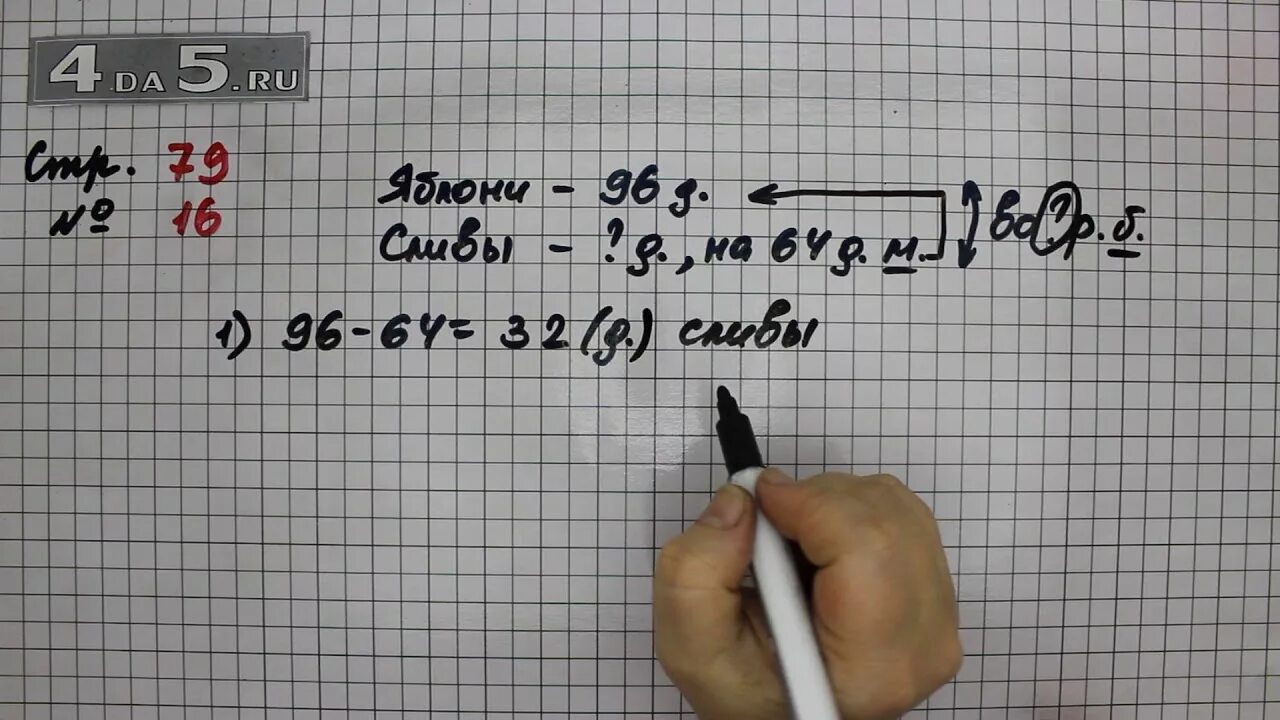 4.DA5.RU
Стр. 79
№ 16
Яблони - 96 д.
Сливы - ? д., на 64 д. м.
во ? р. б.
1) 96 - 64 = 32 (д.) сливы